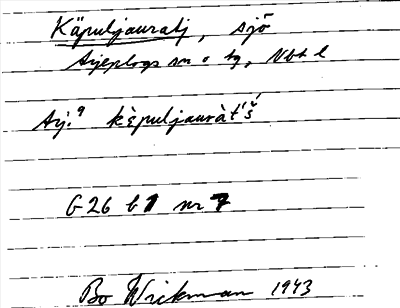 Käpuljauratj, sjö
Arjeplogs sn o tg, Vbt l
Arj.9 kèpuljauràt'ś
G26 b1 nr 7
Bo Wickman 1943